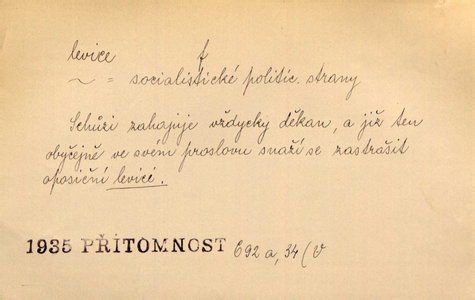 levice f
~ = socialistické politic. strany
Schůzi zahajuje vždycky děkan, a již ten
obyčejně ve svém proslovu snaží se zastrašit
oposiční levici.
1935 PŘÍTOMNOST 692 a, 34 (V